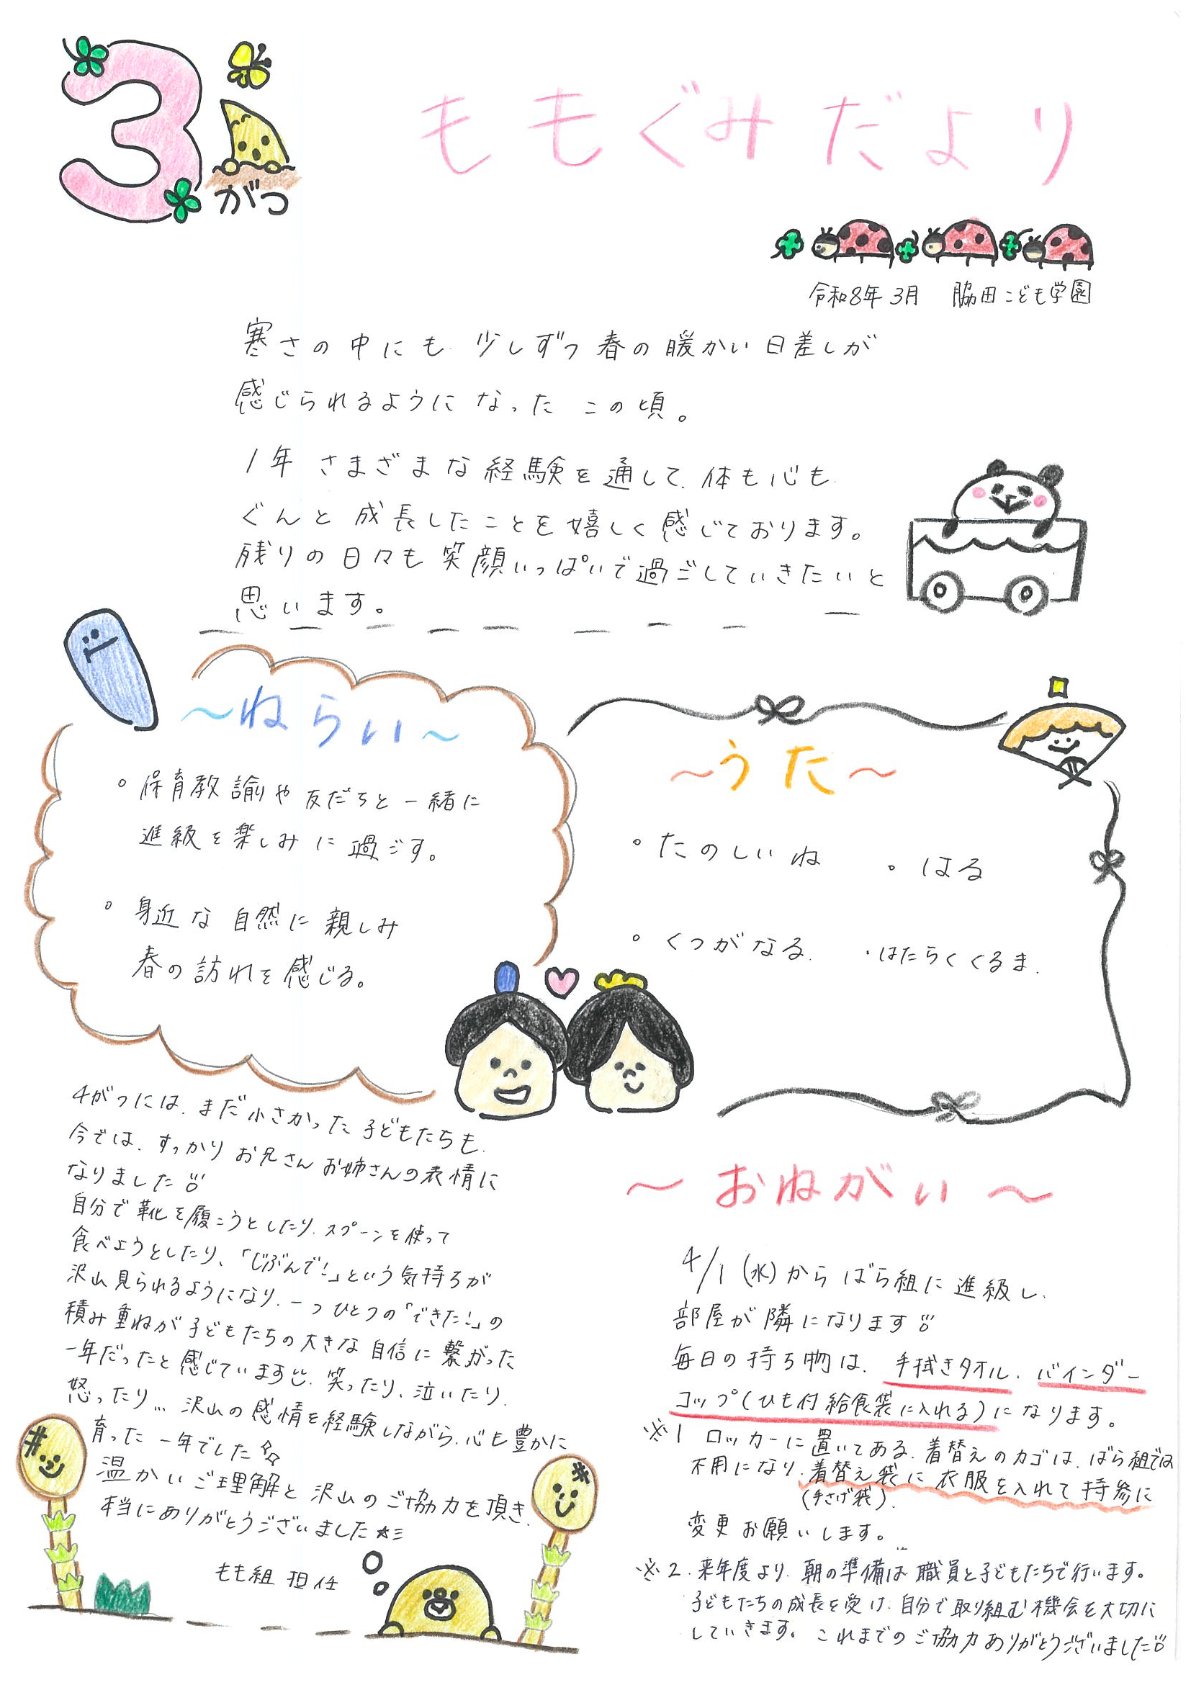 3がつ
ももぐみだより
令和8年3月 脇田こども学園
寒さの中にも少しずつ春の暖かい日差しが
感じられるようになったこの頃。
1年さまざまな経験を通して、体も心も
ぐんと成長したことを嬉しく感じております。
残りの日々も笑顔いっぱいで過ごしていきたいと
思います。
～ねらい～
・保育教諭や友だちと一緒に
進級を楽しみに過ごす。
・身近な自然に親しみ
春の訪れを感じる。
～うた～
・たのしいね
・はる
・くつがなる
・はたらくくるま
4がつには、まだ小さかった子どもたちも、
今では、すっかりお兄さんお姉さんの表情に
なりました
自分で靴を履こうとしたり、スプーンを使って
食べようとしたり、「じぶんで!」という気持ちが
沢山見られるようになり、一つひとつの「できた!」の
積み重ねが子どもたちの大きな自信に繋がった
一年だったと感じています。笑ったり、泣いたり、
怒ったり…沢山の感情を経験しながら、心も豊かに
育った一年でした☆
温かいご理解と沢山のご協力を頂き、
本当にありがとうございました★
もも組 担任
～おねがい～
4/1(水)からばら組に進級し、
部屋が隣になります
毎日の持ち物は、手拭きタオル、バインダー
コップ(ひも付給食袋に入れる)になります。
※1 ロッカーに置いてある、着替えのカゴは、ばら組では
不用になり、着替え袋に衣服を入れて持参に
(手さげ袋)
変更お願いします。
※2. 来年度より、朝の準備は職員と子どもたちで行います。
子どもたちの成長を受け、自分で取り組む機会を大切に
していきます。これまでのご協力ありがとうございました